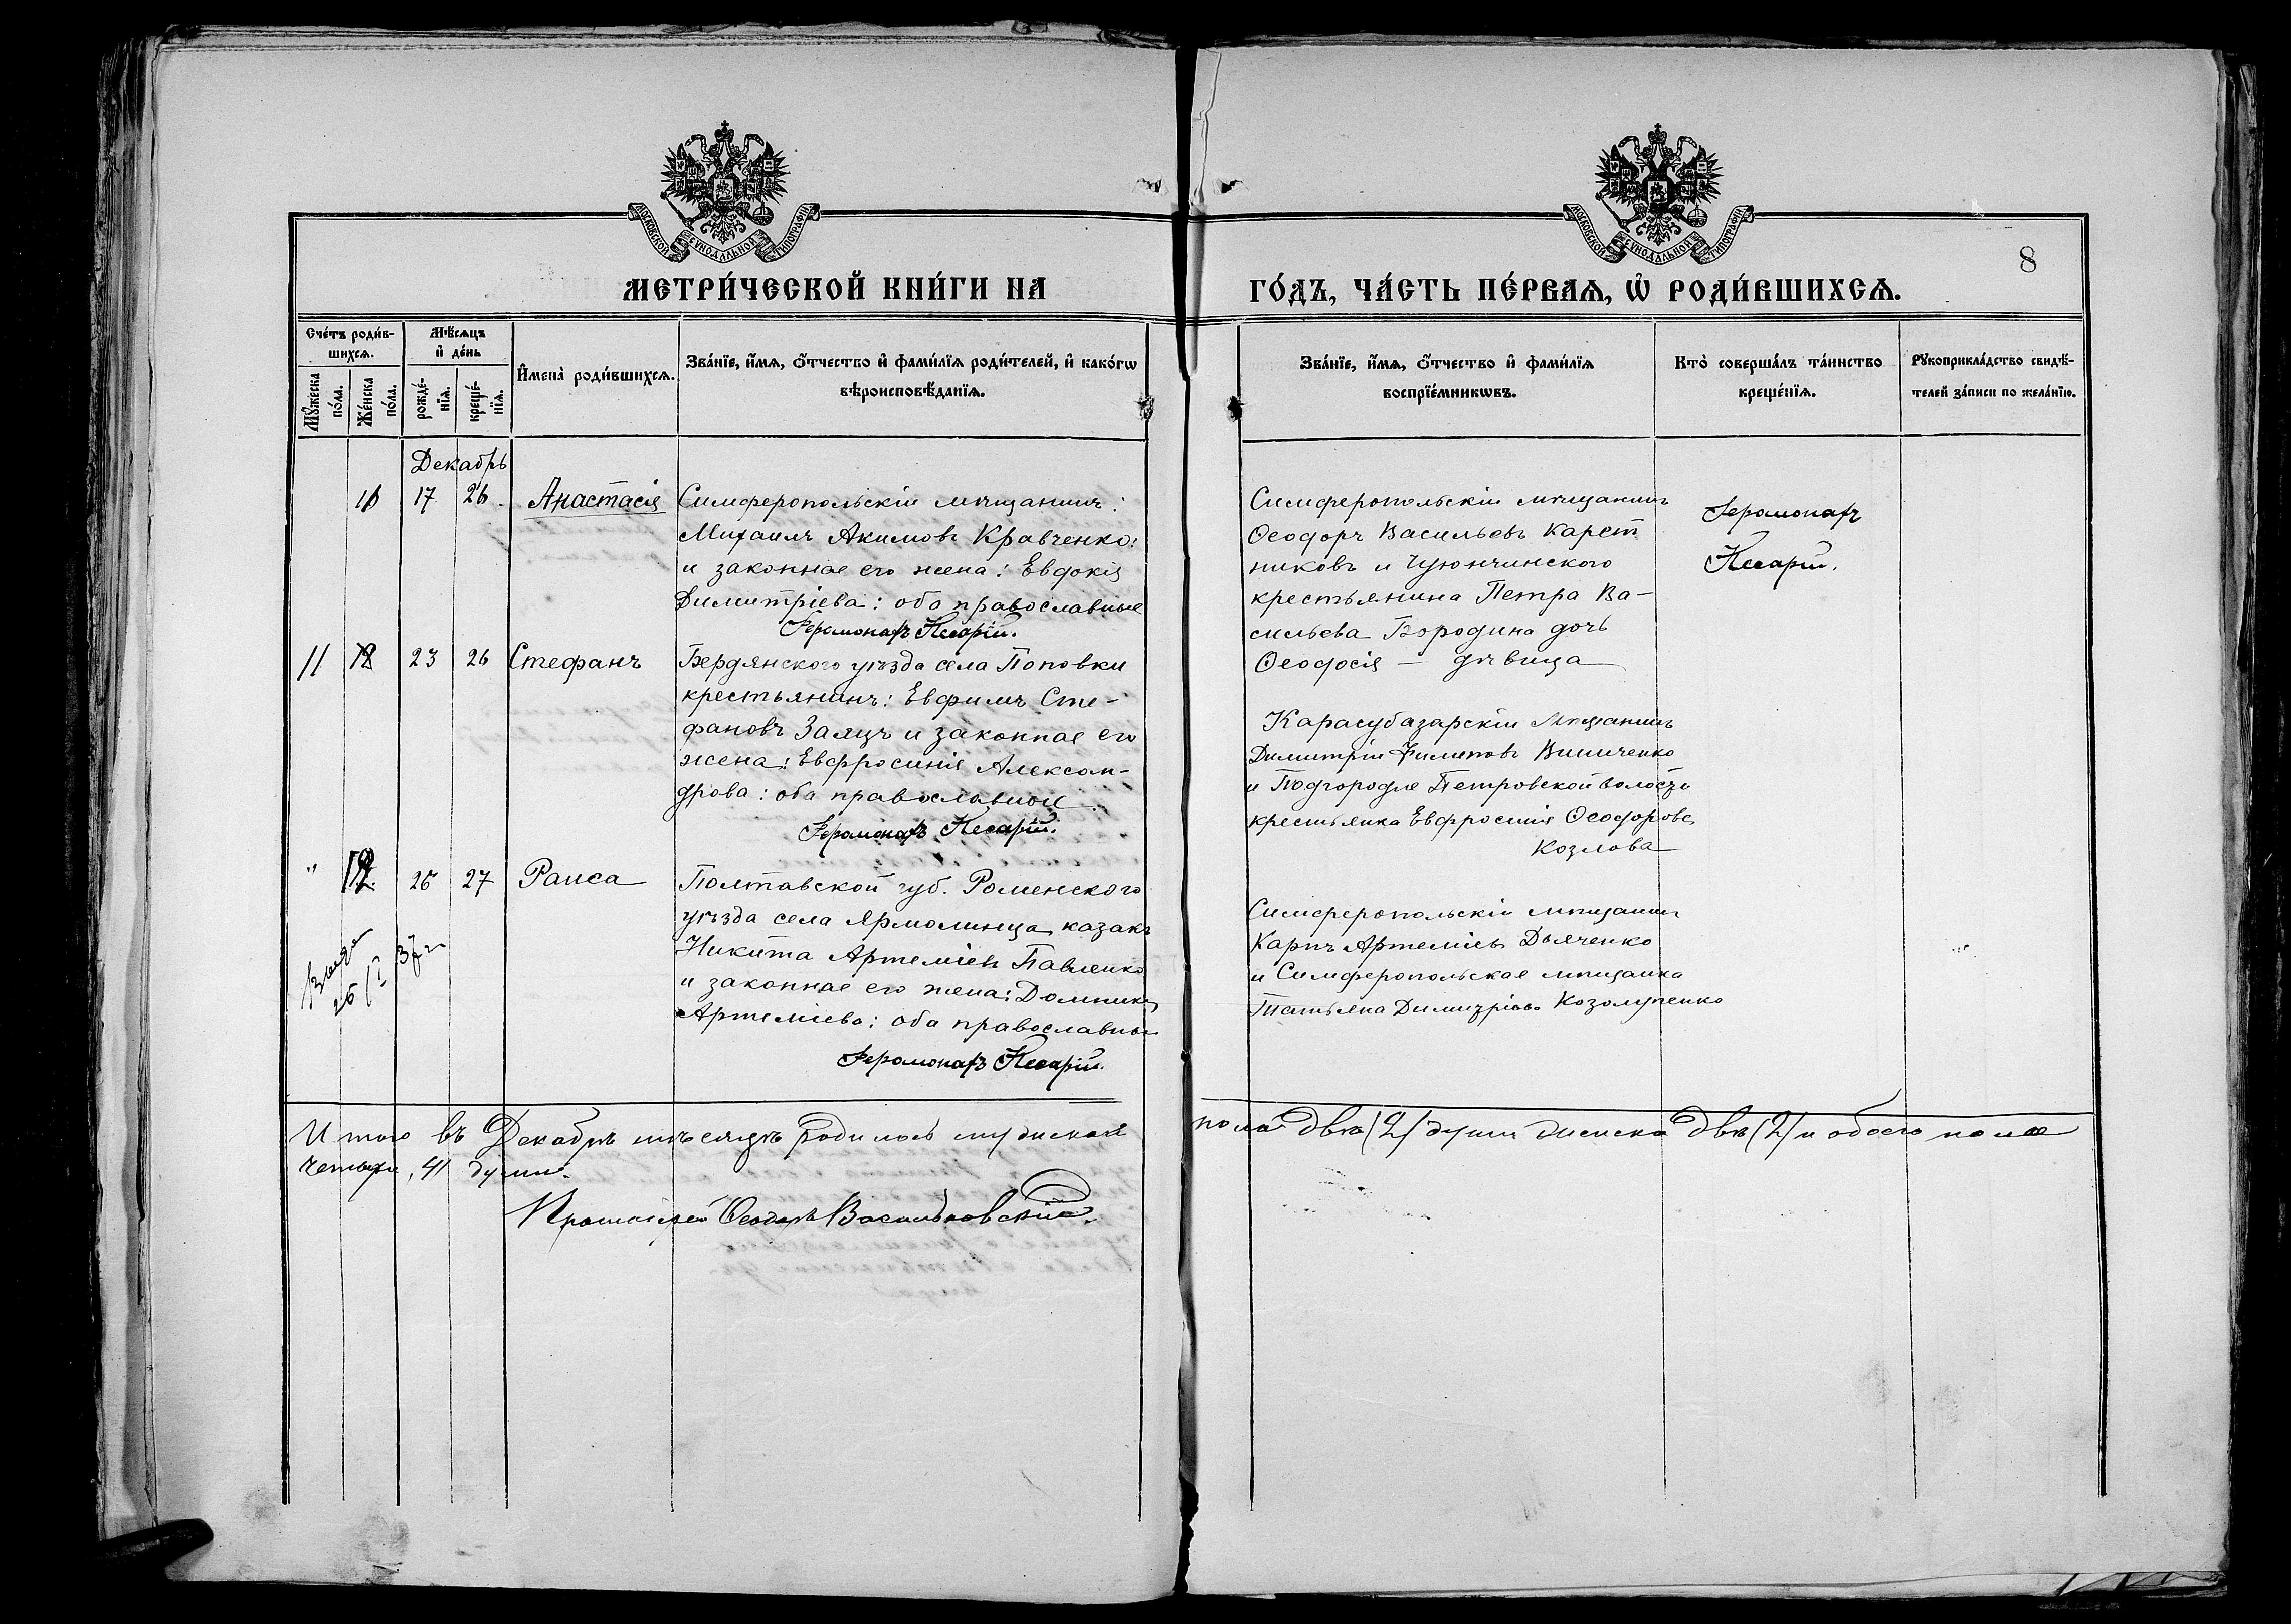 МОСКОВСКОЙ СѴНОДАЛЬНОЙ ТИПОГРАФІИ
МОСКОВСКОЙ СѴНОДАЛЬНОЙ ТИПОГРАФІИ
8
МЕТРИ́ЧЕСКОЙ КНИ́ГИ НА
ГО́ДЪ, ЧА́СТЬ ПЕ́РВАЯ, Ѡ҆ РОДИ́ВШИХСЯ.
Сче́тъ роди́в-
шихся.
Мѣ́сяцъ
и҆ де́нь
Мꙋ́жеска
по́ла.
Же́нска
по́ла.
рожде́-
нїя.
креще́-
нїя.
И҆мена̀ роди́вшихся.
Зва́нїе, и҆́мя, ѻ҆́тчество и҆ фами́лїя роди́телей, и҆ како́гѡ
вѣроисповѣ́данїя.
Зва́нїе, и҆́мя, ѻ҆́тчество и҆ фами́лїя
воспрїе́мникѡвъ.
Кто̀ соверша́лъ та́инство
креще́нїя.
Рꙋкоприкла́дство свидѣ́-
телей за́писи по жела́нїю.
Декабрь
10 17 26. Анастасія
Симферопольскій мѣщанинъ:
Михаилъ Акимовъ Кравченко:
и законная его жена: Евдокія
Димитріева: оба православные
Іеромонахъ Кесарій.
Симферопольскій мѣщанинъ
Ѳеодоръ Васильевъ Карет
никовъ и Чуюнчинского
крестьянина Петра Ва-
сильева Бородина дочь
Ѳеодосія — дѣвица
Іеромонахъ
Кесарій.
11 23 26 Стефанъ
Бердянского уѣзда села Поповки
крестьянинъ: Евфимъ Сте-
фановъ Заяцъ и законная его
жена: Евфросинія Алексан-
дрова: оба православные
Іеромонахъ Кесарій.
Карасубазарскій мѣщанинъ
Димитрій Филиповъ Виниченко
и Подгородне Петровской волости
крестьянка Евфросинія Ѳеодорова
Козлова
" 26 27 Раиса
Полтавской губ. Роменского
уѣзда села Ярмолинца казакъ
Никита Артеміевъ Павленко
и законная его жена: Домникія
Артеміева: оба православные
Іеромонахъ Кесарій.
Симферопольскій мѣщанинъ
Карпъ Артеміевъ Дьяченко
и Симферопольская мѣщанка
Татьяна Димитріева Козолупенко
Итого въ Декабрѣ мѣсяцѣ родилось мужескаго
пола двѣ (2) души женска двѣ (2) и обоего пола
четыре, 4 души.
Протоіерей Ѳеодоръ Васильковскій.